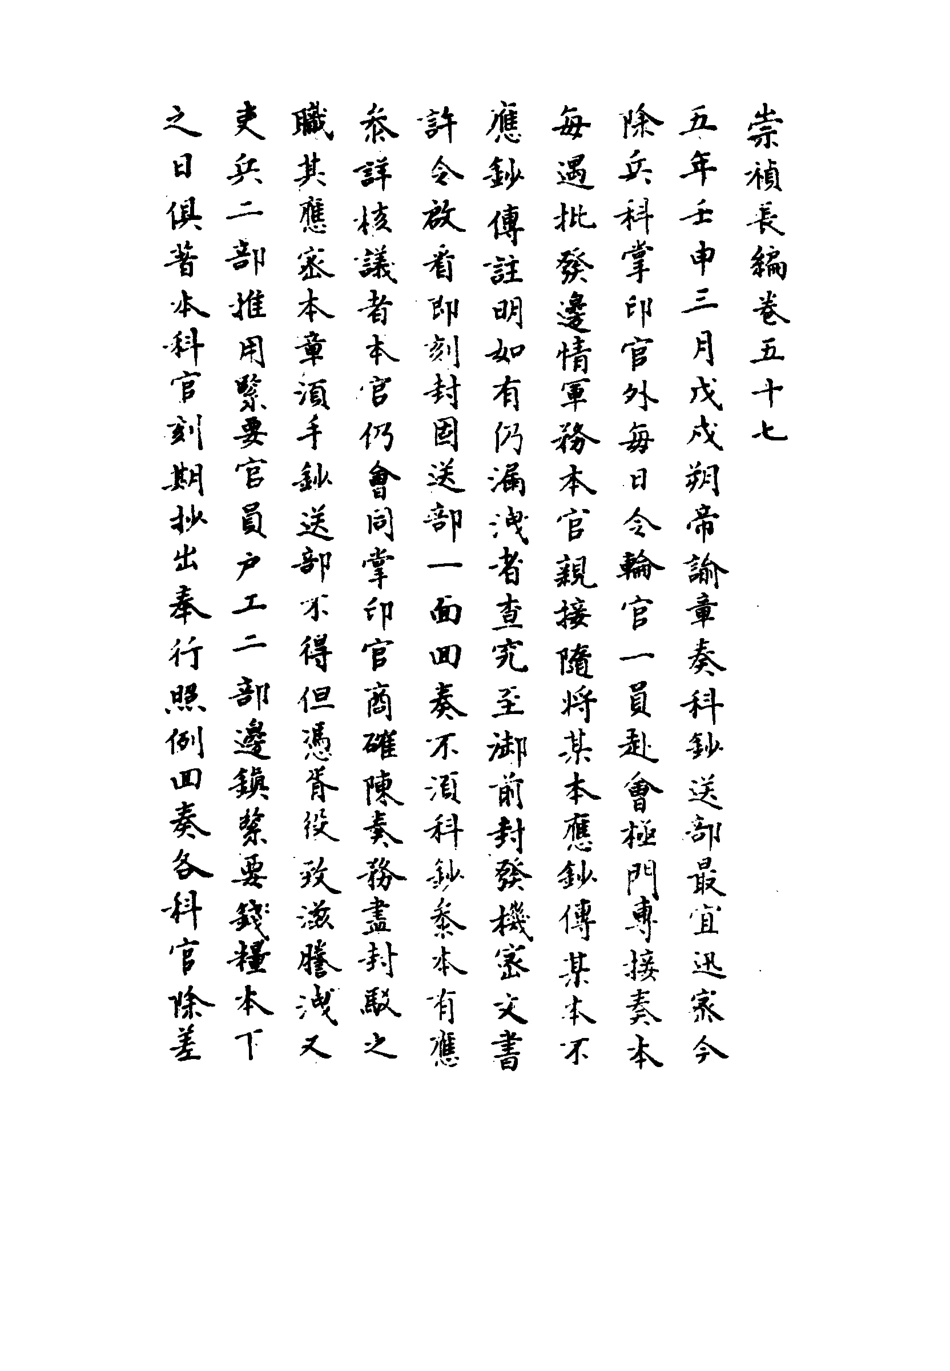 崇禎長編卷五十七
五年壬申三月戊戌朔帝諭章奏科鈔送部最宜迅密今
除兵科掌印官外每日令輪官一員赴會極門專接奏本
每遇批發邊情軍務本官親接隨將某本應鈔傳某本不
應鈔傳註明如有仍漏洩者查究至御前封發機密文書
許令啟看即刻封固送部一面回奏不須科鈔叅本有應
叅詳核議者本官仍會同掌印官商確陳奏務盡封駁之
職其應密本章須手鈔送部不得但憑胥役致滋謄洩又
吏兵二部推用緊要官員户工二部邊鎮緊要錢糧本下
之日俱著本科官刻期抄出奉行照例回奏各科官除差